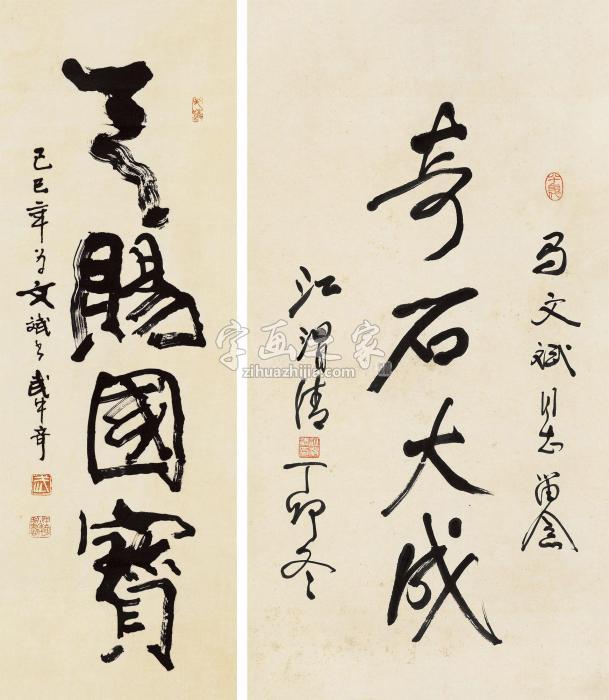 天賜國寶
己巳年为文斌书武中奇
马文斌同志留念
奇石大成
江渭清
丁卯冬
字画之家
zihuazhijia.com